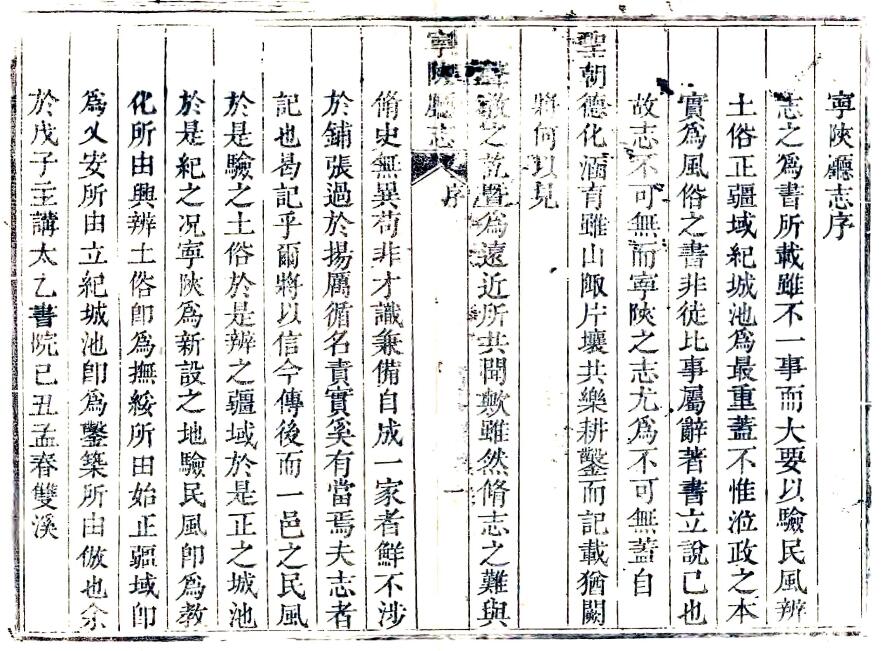 寧陜廳志序
志之爲書所載雖不一事而大要以驗民風辨
土俗正疆域紀城池爲最重蓋不惟涖政之本
實爲風俗之書非徒比事屬辭著書立說已也
故志不可無而寧陜之志尤爲不可無蓋自
聖朝德化涵育雖山陬片壤共樂耕鑿而記載猶闕
將何以見
教之訖曁爲遠近所共聞歟雖然脩志之難與
寧陜廳志 序 一
脩史無異苟非才識兼備自成一家者鮮不涉
於鋪張過於揚厲循名責實奚有當焉夫志者
記也曷記乎爾將以信今傳後而一邑之民風
於是驗之土俗於是辨之疆域於是正之城池
於是紀之况寧陜爲新設之地驗民風卽爲教
化所由興辨土俗卽爲撫綏所由始正疆域卽
爲乂安所由立紀城池卽爲鑿築所由倣也余
於戊子主講太乙書院己丑孟春雙溪